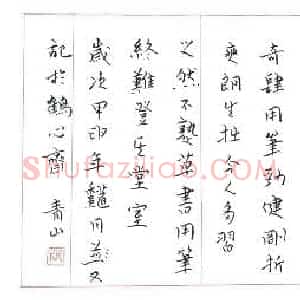 奇肆用筆勁健剛折
爽朗生拙今人多習
之然不熟草書用筆
終難登其堂室
歲次甲申年穐月並又
記於鶴心齋 青山
Shufaziliao.com